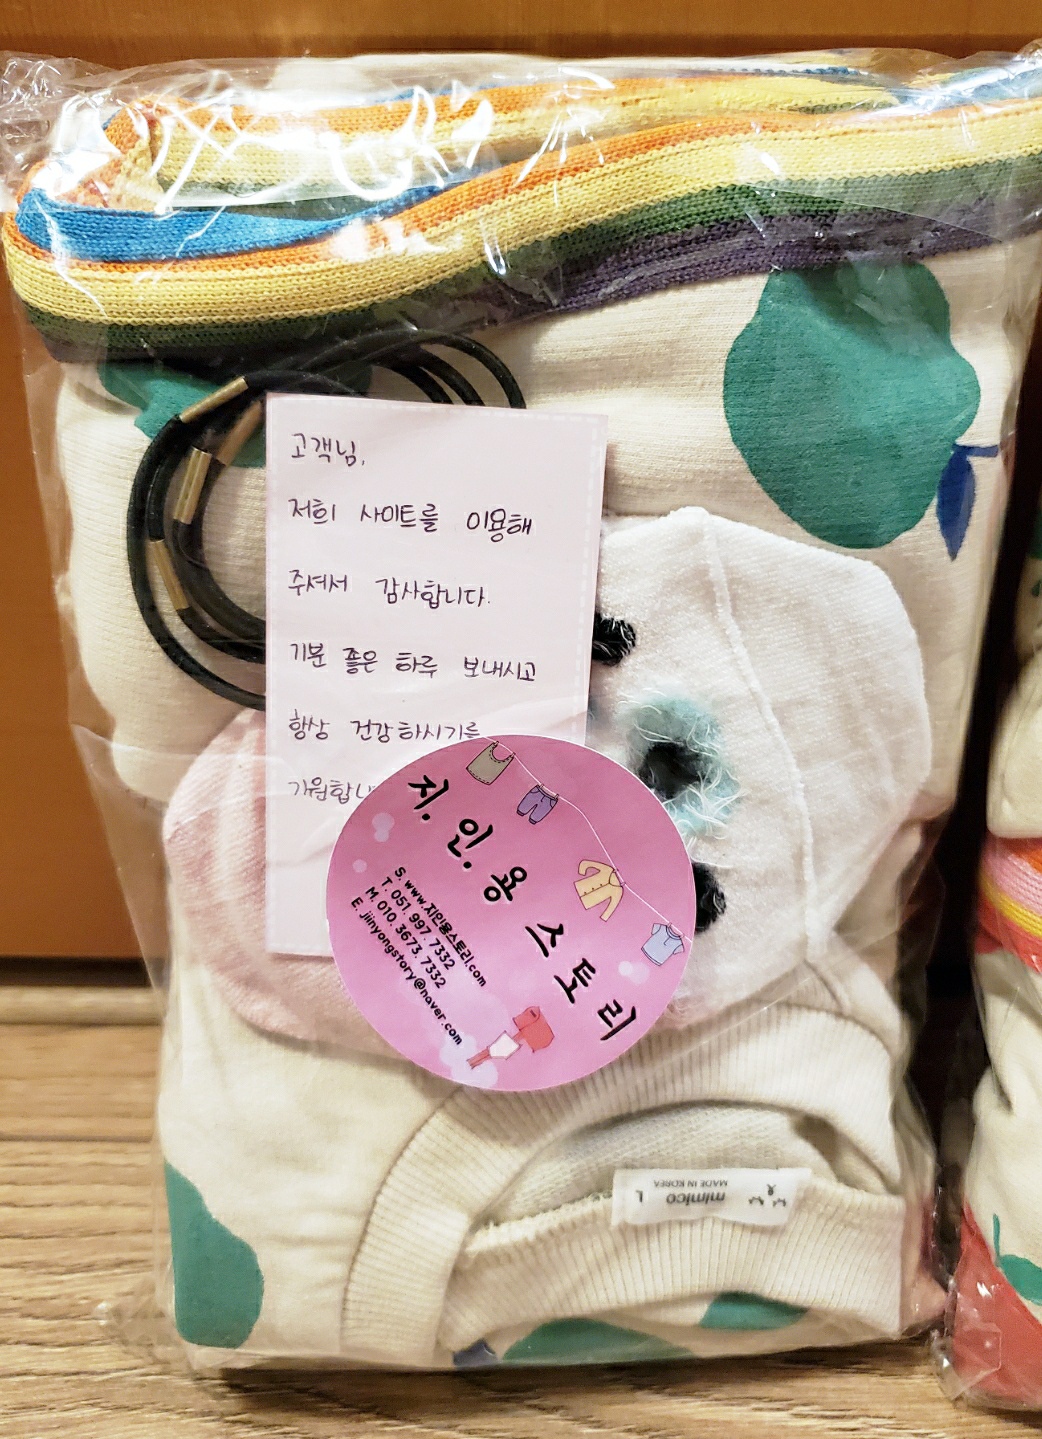 고객님,
저희 사이트를 이용해
주셔서 감사합니다.
기분 좋은 하루 보내시고
항상 건강하시기를
지.인.용 스토리
S. www.지인용스토리.com
T. 051. 997. 7332
M. 010. 3673. 7332
E. jiinyongstory@naver.com
mimico
MADE IN KOREA
L